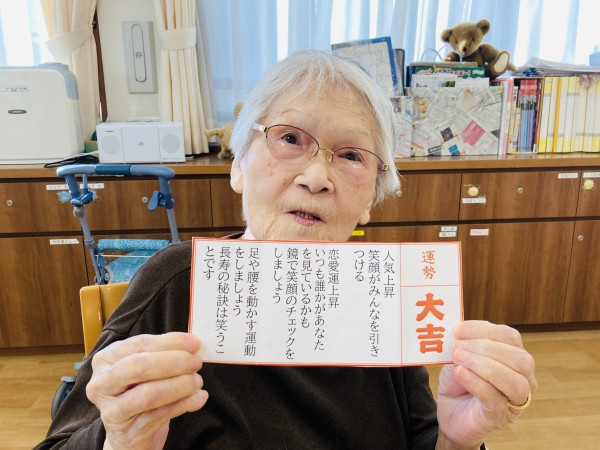 運勢
大吉
人気上昇
笑顔がみんなを引き
つける
恋愛運上昇
いつも誰かがあなた
を見ているかも
鏡で笑顔のチェックを
しましょう
足や腰を動かす運動
をしましょう
長寿の秘訣は笑うこ
とです